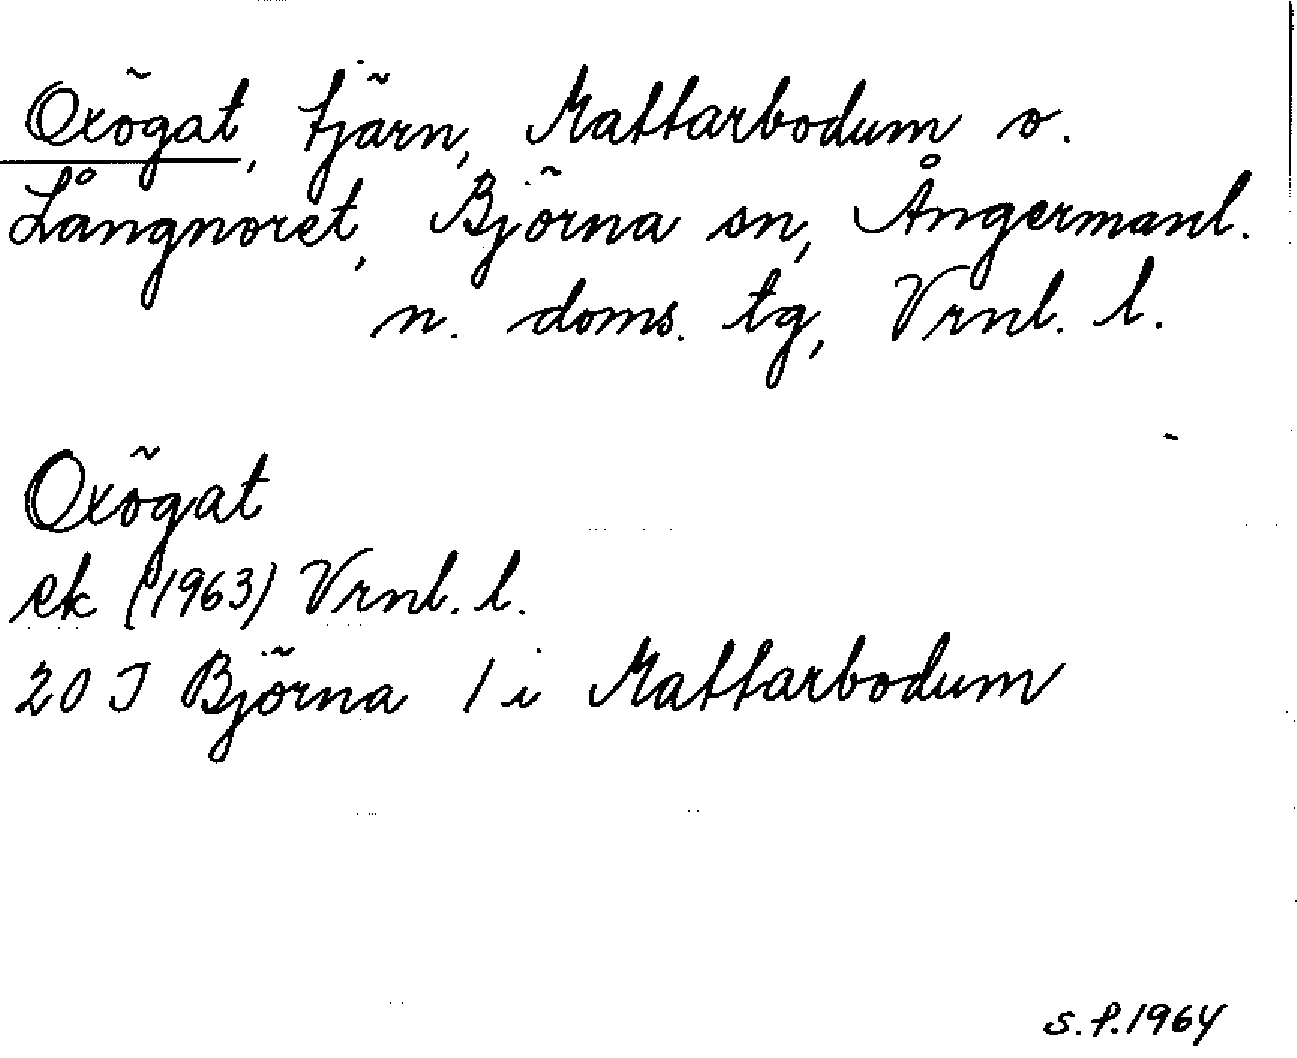 Oxögat, tjärn, Mattarbodum o.
Långnoret, Björna sn, Ångermanl.
n. doms. tg, Vrnl. l.
Oxögat
ek (1963) Vrnl. l.
20 J Björna 1 i Mattarbodum
s. f. 1964